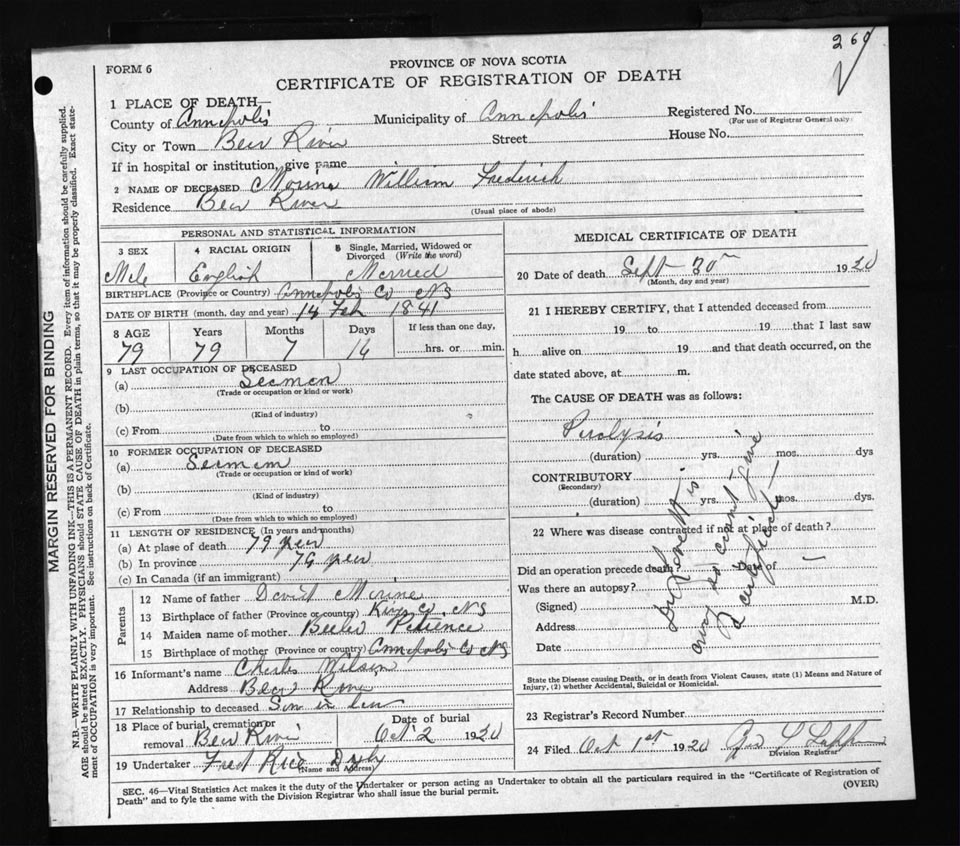 269
FORM 6
PROVINCE OF NOVA SCOTIA
CERTIFICATE OF REGISTRATION OF DEATH
1 PLACE OF DEATH—
County of Annapolis Municipality of Annapolis Registered No.
(For use of Registrar General only)
City or Town Bear River Street House No.
If in hospital or institution, give name
2 NAME OF DECEASED Morine William Frederick
Residence Bear River
(Usual place of abode)
PERSONAL AND STATISTICAL INFORMATION
3 SEX 4 RACIAL ORIGIN 5 Single, Married, Widowed or Divorced (Write the word)
Male English Married
BIRTHPLACE (Province or Country) Annapolis Co NS
DATE OF BIRTH (month, day and year) 14 Feb 1841
8 AGE Years Months Days If less than one day,
79 79 7 16 hrs. or min.
9 LAST OCCUPATION OF DECEASED
(a) Seaman
(Trade or occupation or kind or work)
(b)
(Kind of industry)
(c) From to
(Date from which to which so employed)
10 FORMER OCCUPATION OF DECEASED
(a) Seaman
(Trade or occupation or kind of work)
(b)
(Kind of industry)
(c) From to
(Date from which to which so employed)
11 LENGTH OF RESIDENCE (In years and months)
(a) At plase of death 79 year
(b) In province 79 year
(c) In Canada (if an immigrant)
Parents
12 Name of father David Morine
13 Birthplace of father (Province or country) Kings Co. NS
14 Maiden name of mother Beeler Patience
15 Birthplace of mother (Province or country) Annapolis Co NS
16 Informant's name Charles Wilson
Address Bear River
17 Relationship to deceased Son in law
18 Place of burial, cremation or removal Bear River Date of burial Oct 2 1920
19 Undertaker Fred Rice Digby
(Name and Address)
MEDICAL CERTIFICATE OF DEATH
20 Date of death Sept 30th 1920
(Month, day and year)
21 I HEREBY CERTIFY, that I attended deceased from
19 to 19 that I last saw
h alive on 19 and that death occurred, on the
date stated above, at m.
The CAUSE OF DEATH was as follows:
Paralysis
(duration) yrs. mos. dys
CONTRIBUTORY
(Secondary)
(duration) yrs. mos. dys
22 Where was disease contracted if not at place of death?
Did an operation precede death? Date of
Was there an autopsy?
(Signed) M.D.
Address
Date
Dr Lovett is
away so cannot give
a certificate
State the Disease causing Death, or in death from Violent Causes, state (1) Means and Nature of
Injury, (2) whether Accidental, Suicidal or Homicidal.
23 Registrar's Record Number
24 Filed Oct 1st 1920
Division Registrar
SEC. 46—Vital Statistics Act makes it the duty of the Undertaker or person acting as Undertaker to obtain all the particulars required in the "Certificate of Registration of
Death" and to fyle the same with the Division Registrar who shall issue the burial permit.
(OVER)
MARGIN RESERVED FOR BINDING
N.B.—WRITE PLAINLY WITH UNFADING INK—THIS IS A PERMANENT RECORD. Every item of information should be carefully supplied.
AGE should be stated EXACTLY. PHYSICIANS should STATE CAUSE OF DEATH in plain terms, so that it may be properly classified. Exact state-
ment of OCCUPATION is very important. See instructions on back of Certificate.